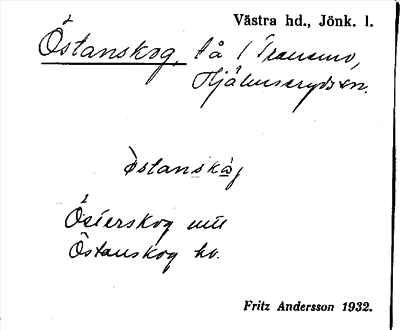 Västra hd., Jönk. l.
Östanskog, lå / Tranemo,
Hjälmseryds sn.
östanskåg
Österskog
Östanskog hv.
Fritz Andersson 1932.